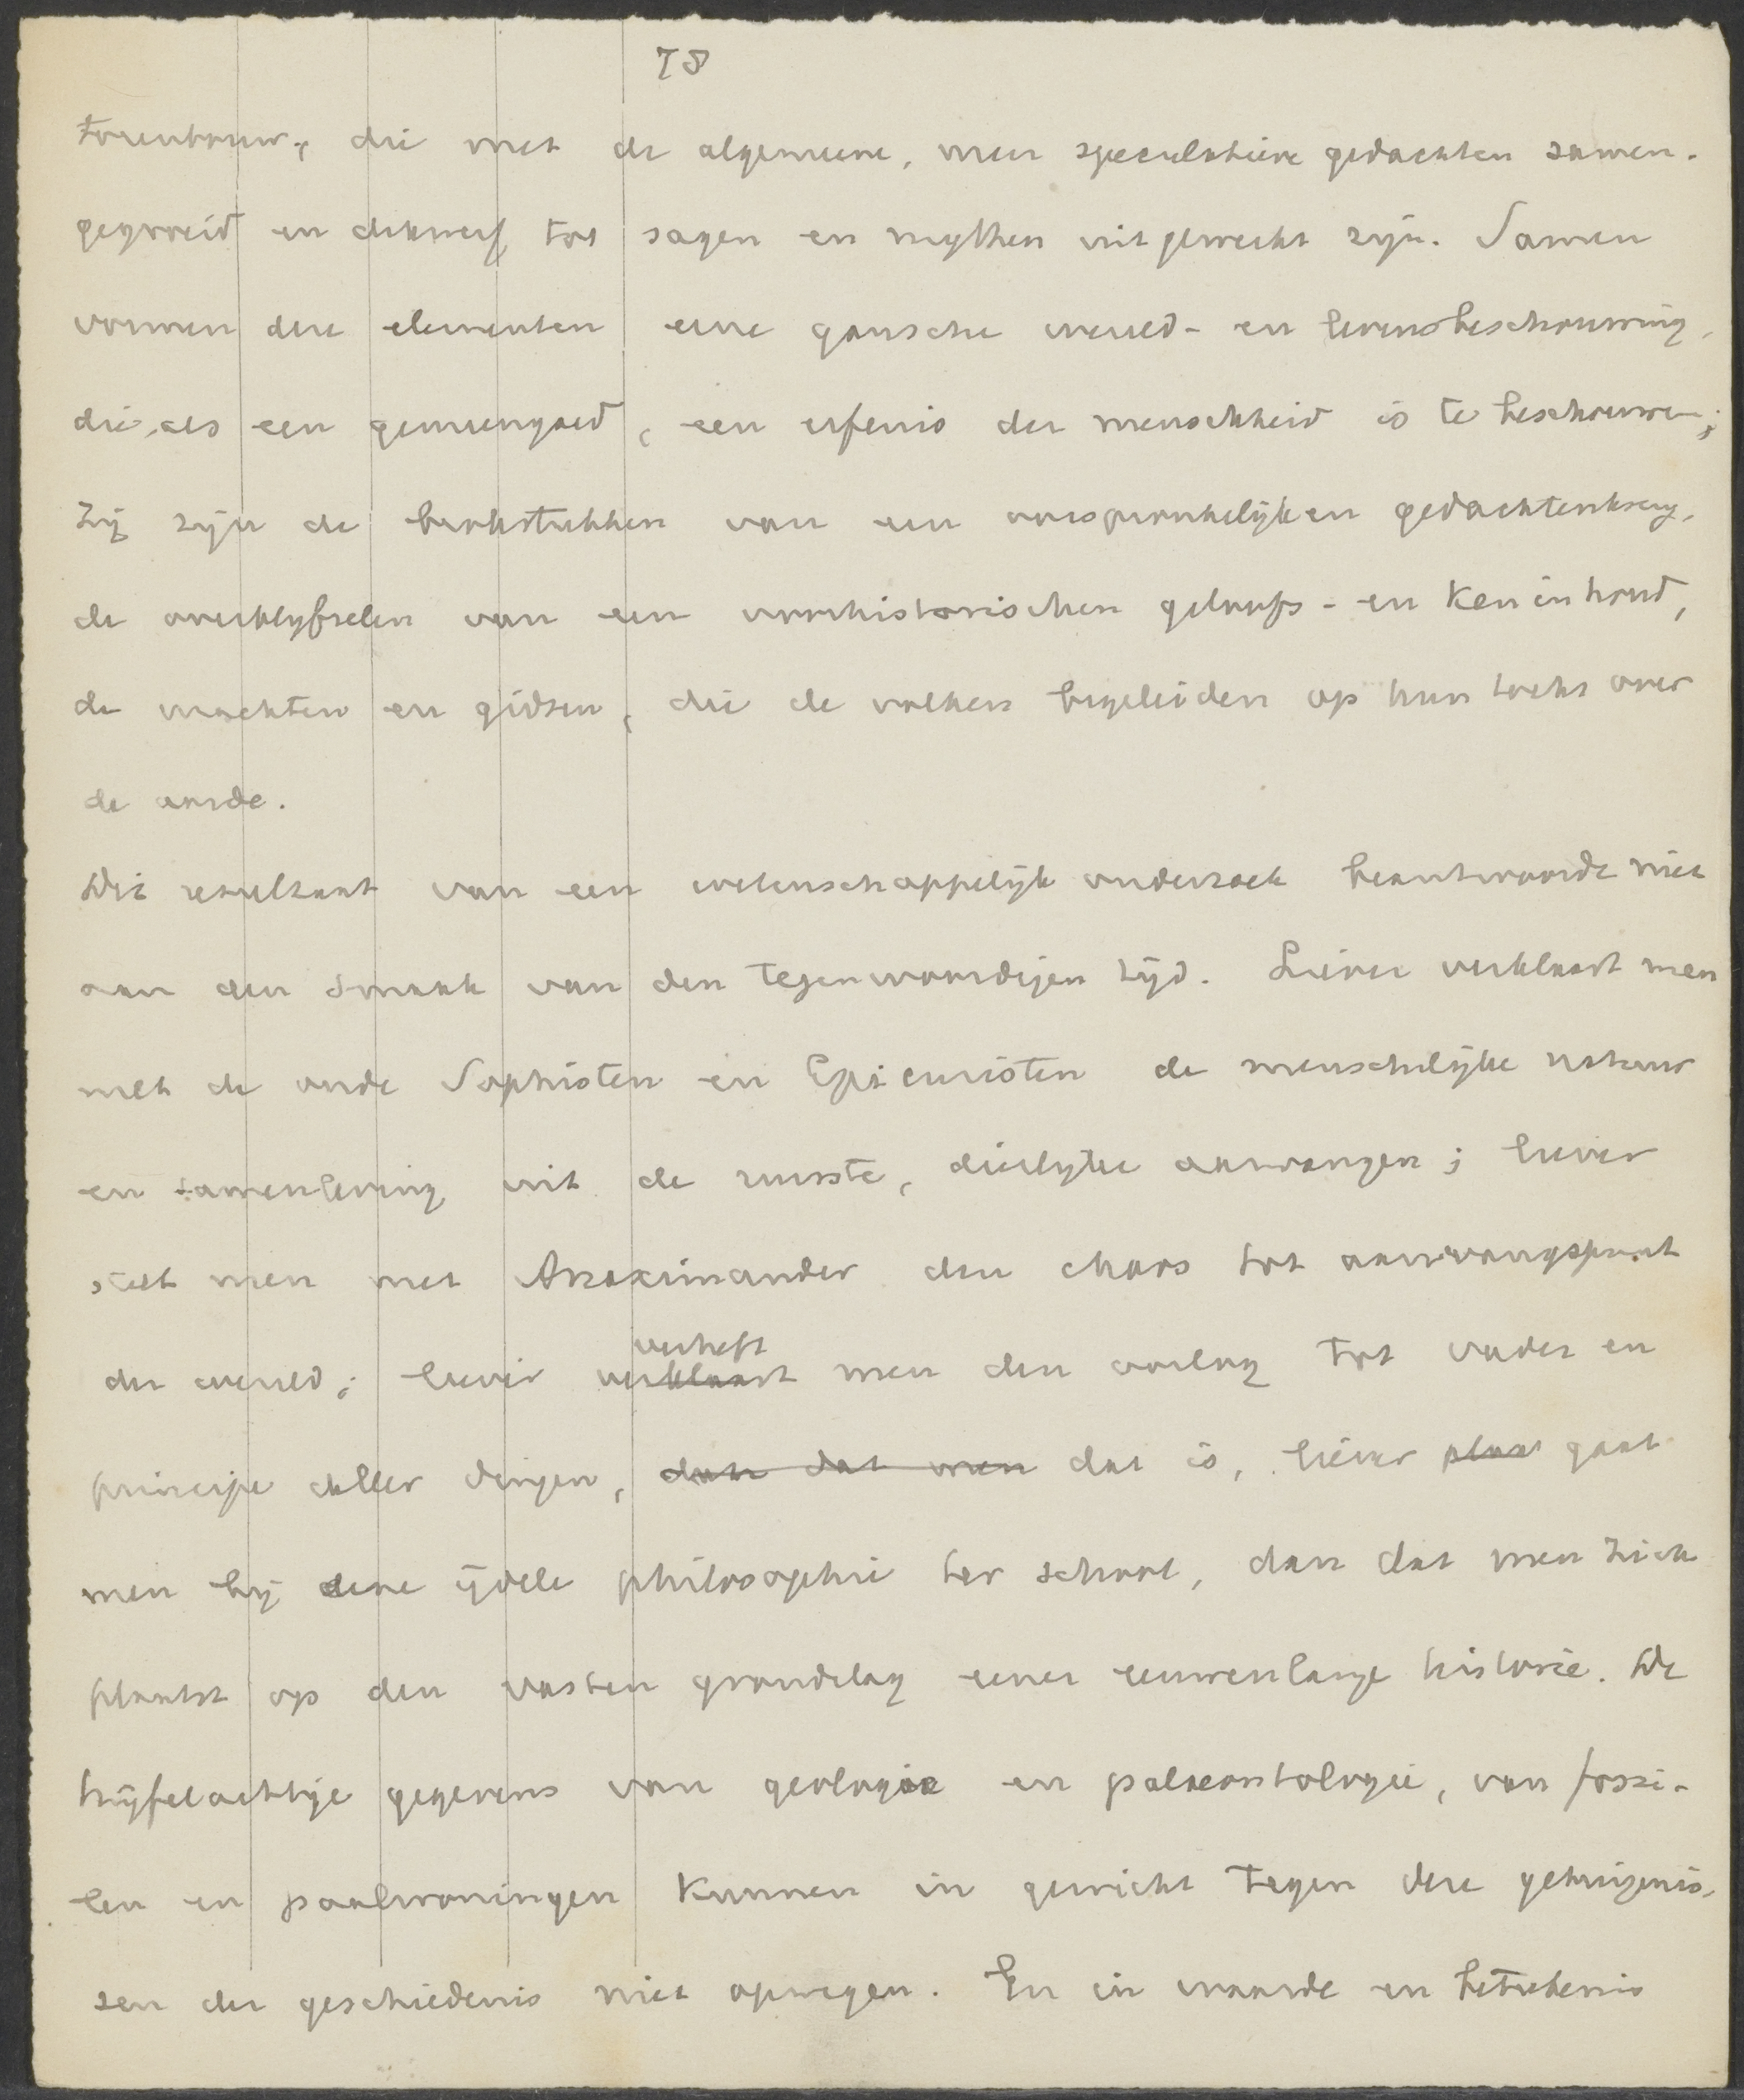 78
torenbouw, die met de algemeene, meer speculatieve gedachten samen-
gegroeid en dikwerf tot sagen en mythen uitgewerkt zijn. Samen
vormen deze elementen eene gansche wereld- en levensbeschouwing,
die, als een gemeengoed, een erfenis der menschheid is te beschouwen;
zij zijn de brokstukken van een oorspronkelijken gedachtenkring,
de overblyfselen van een voorhistorischen geloofs- en keninhoud,
de machten en gidsen, die de volken begeleiden op hun tocht over
de aarde.
Dit resultaat van een wetenschappelijk onderzoek beantwoordt niet
aan den smaak van den tegenwoordigen tijd. Liever verklaart men
met de oude Sophisten en Epicuristen de menschelijke natuur
en samenleving uit de ruwste, dierlyke aanvangen; liever
stelt men met Anaximander den chaos tot aanvangspunt
der wereld; liever verklaart verheft men den oorlog tot vader en
principe aller dingen, dan dat men dat is, liever plaat gaat
men bij deze ijdele philosophie ter school, dan dat men zich
plaatst op den vasten grondslag eener eeuwenlange historie. De
twijfelachtige gegevens van geologie en palaeontologie, van fossi-
len en paalwoningen kunnen in gewicht tegen deze getuigenis-
sen der geschiedenis niet opwegen. En in waarde en beteekenis